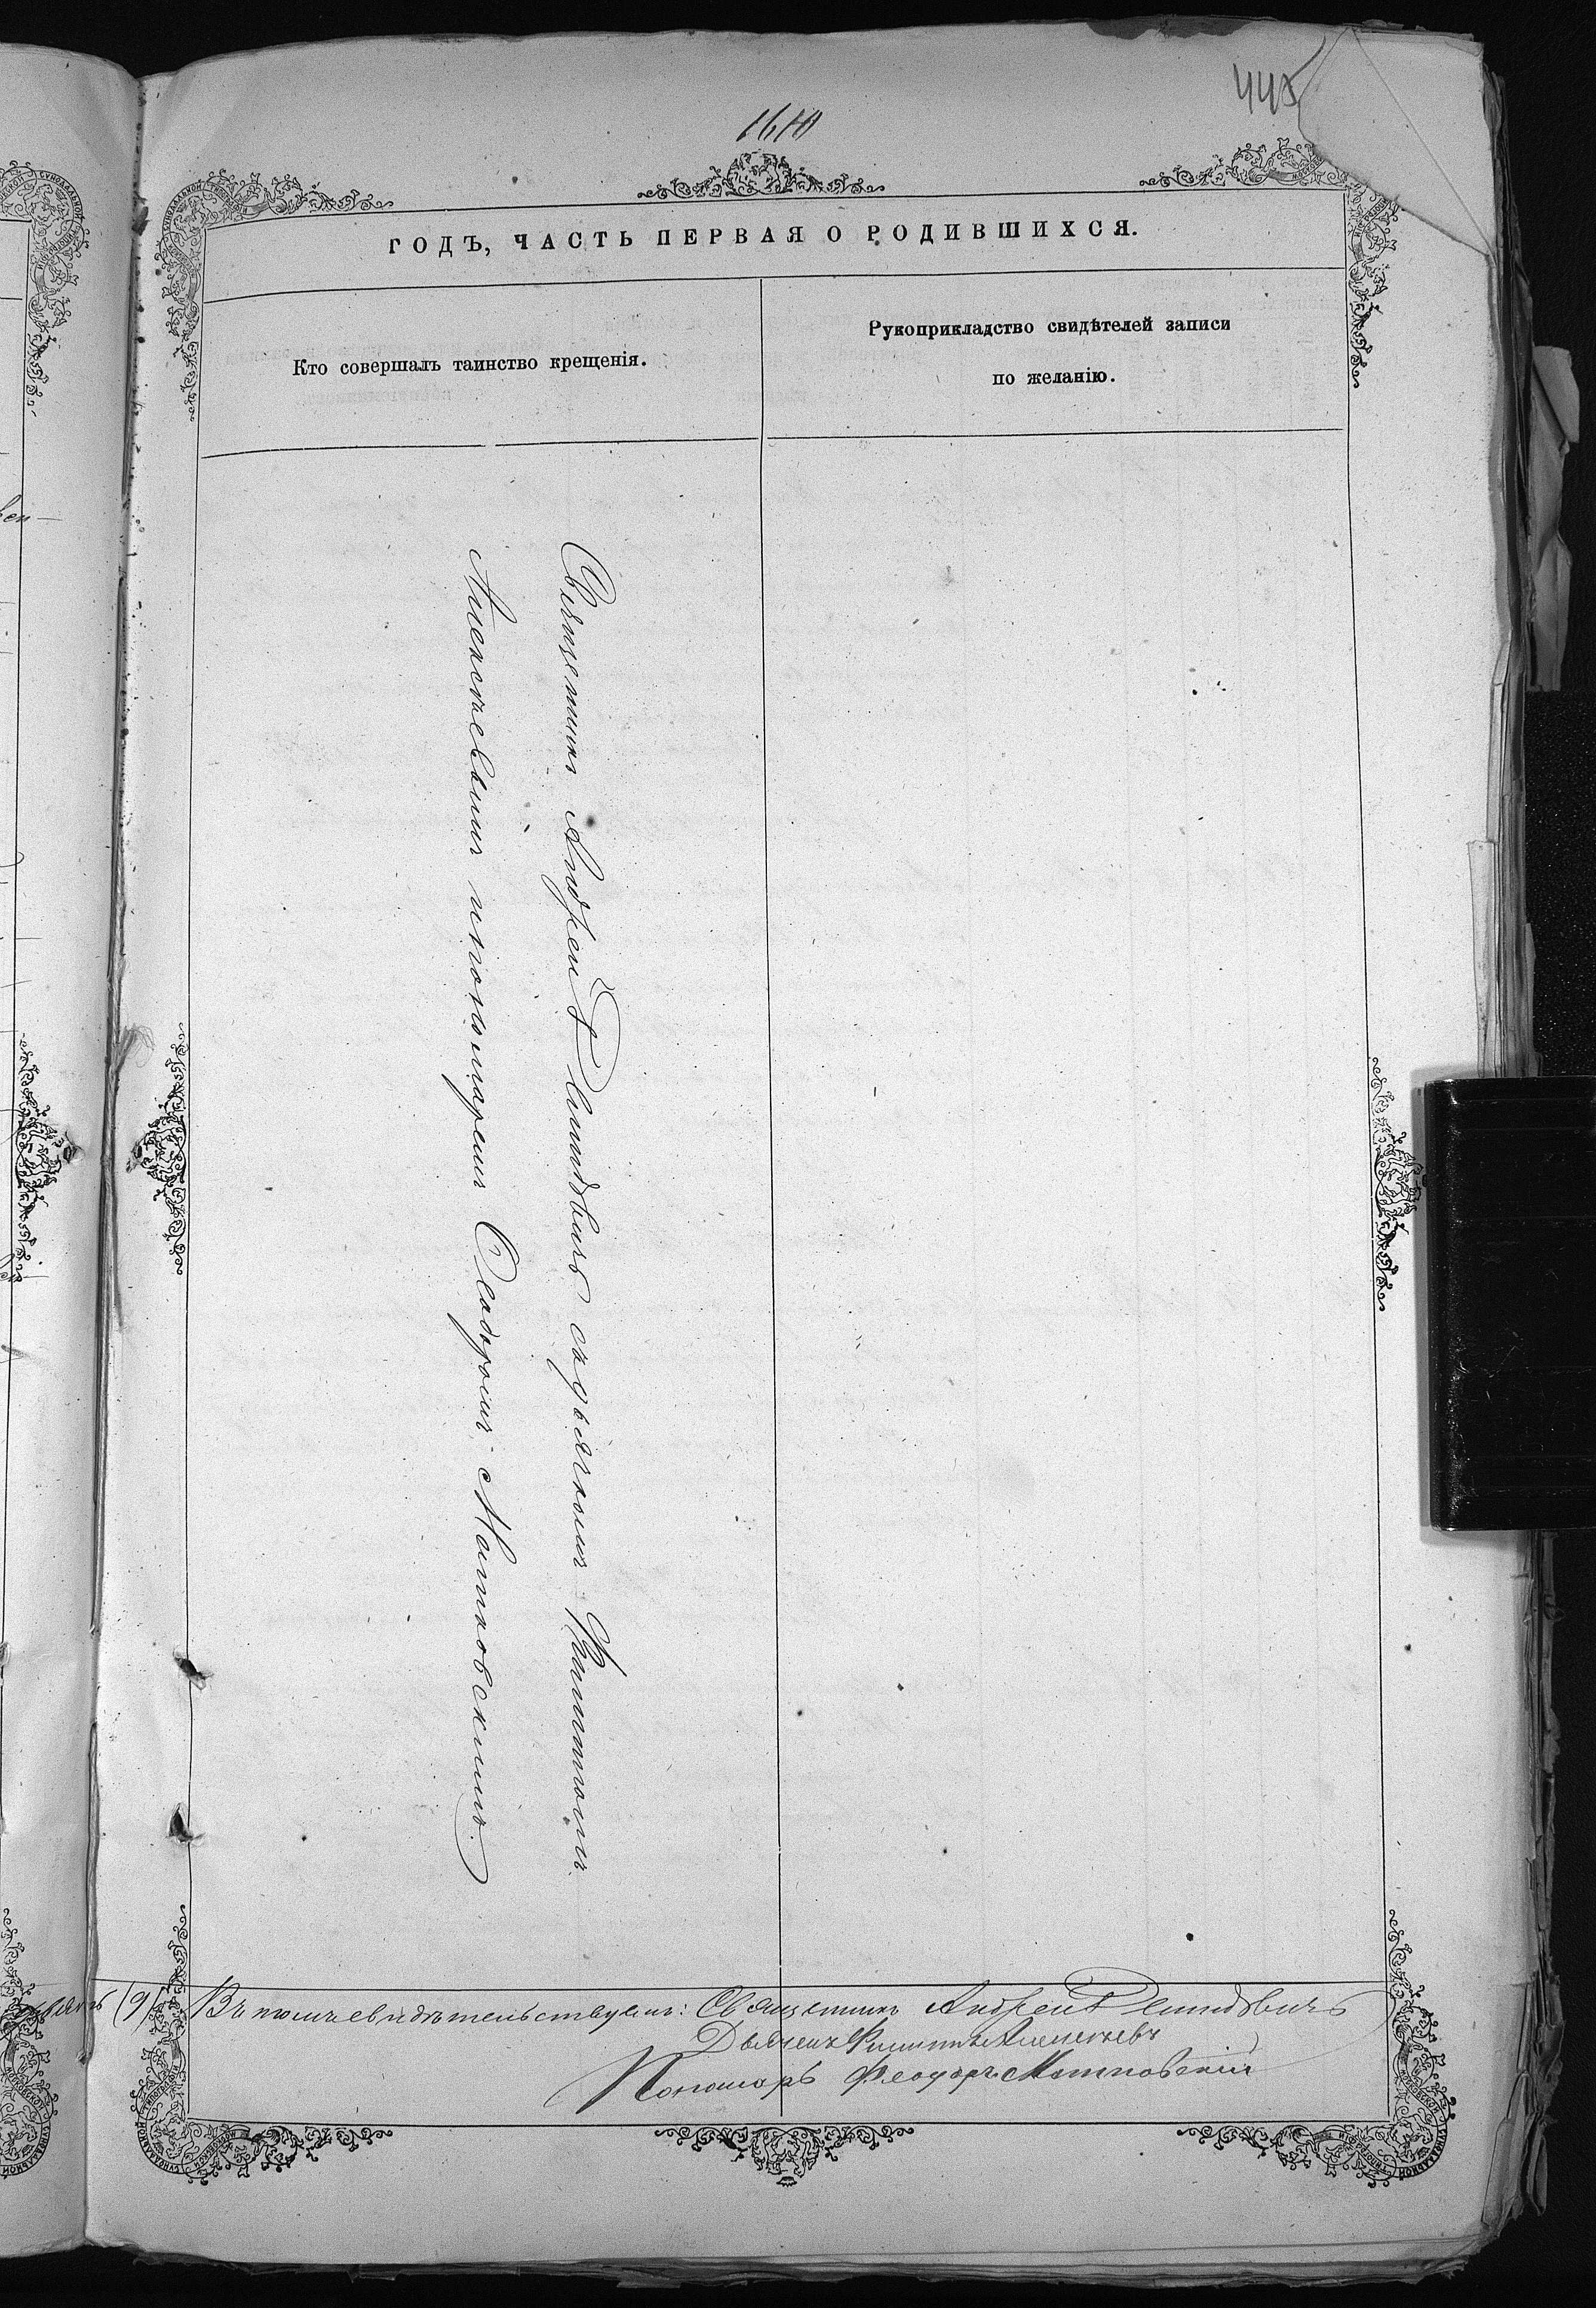 445
ГОДЪ, ЧАСТЬ ПЕРВАЯ О РОДИВШИХСЯ.
Кто совершалъ таинство крещенія.
Рукоприкладство свидѣтелей записи
по желанію.
Священникъ Андрей Демидовичъ съ дьячкомъ Филиппомъ
Алексѣевымъ и пономаремъ Ѳеодоромъ Матковскимъ.
(9) Въ томъ свидѣтельствуемъ: Священникъ Андрей Демидовичъ
Дьячекъ Филиппъ Алексѣевъ
Пономарь Феодоръ Матковскій